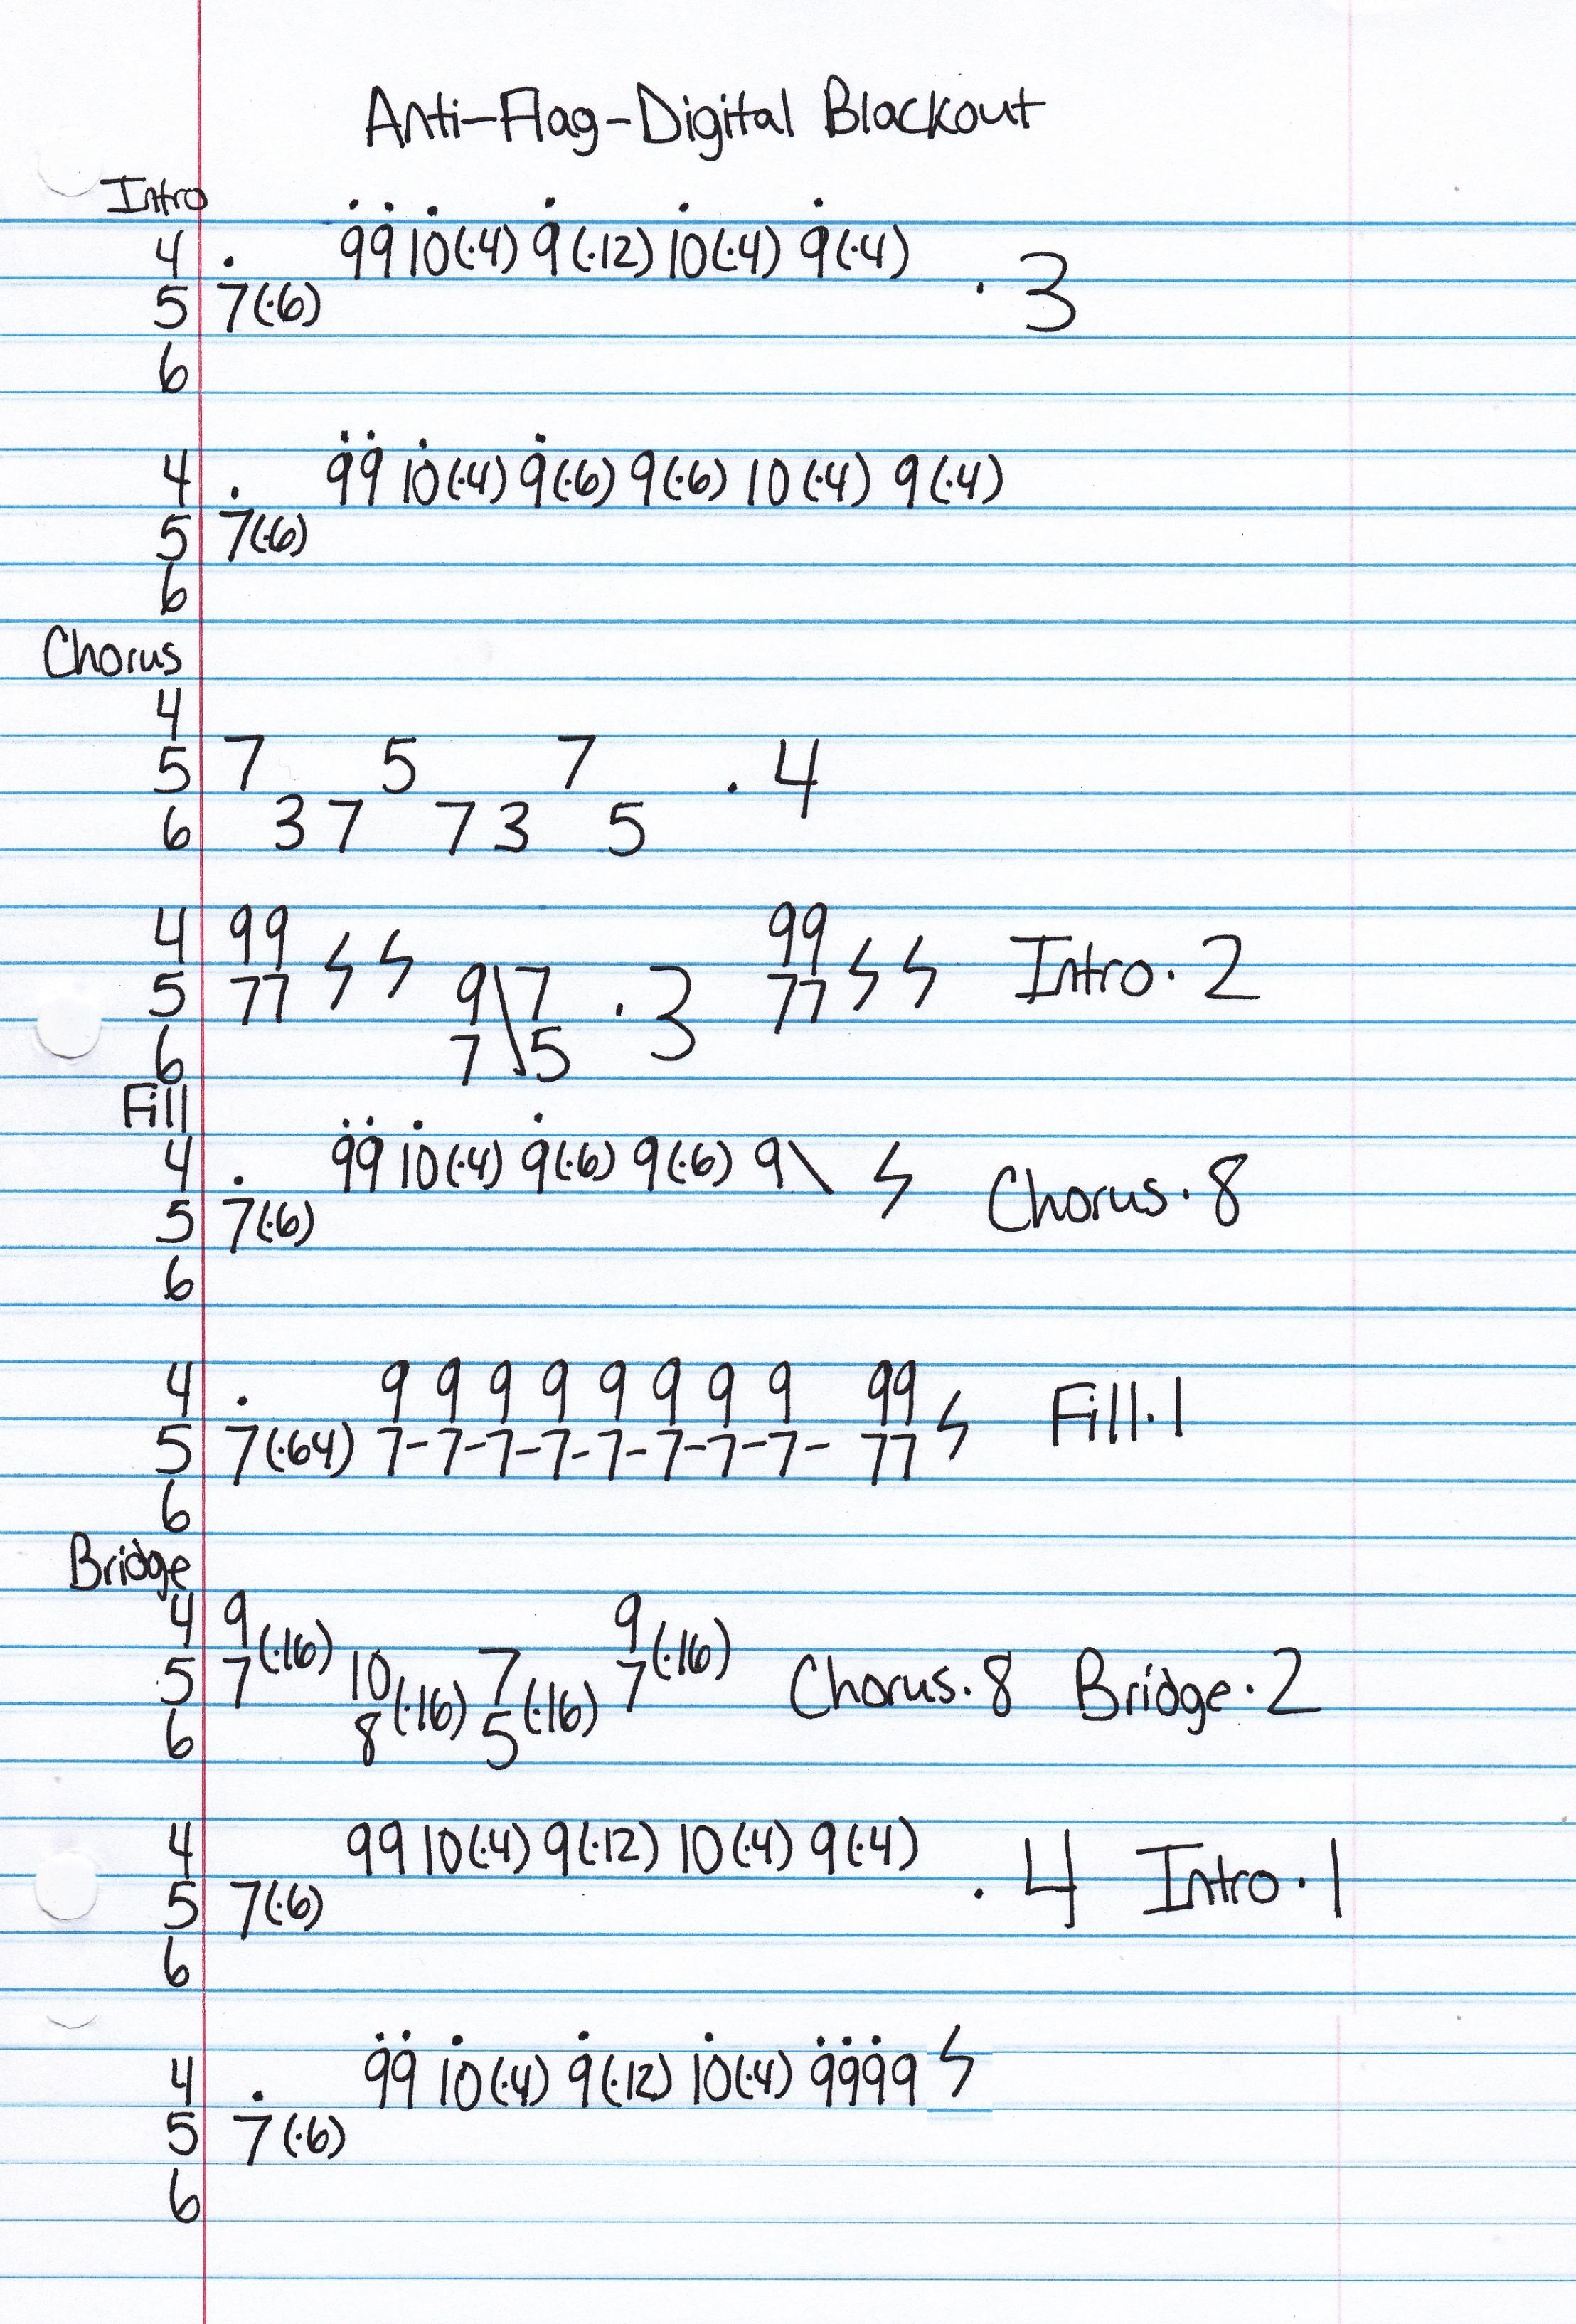 Anti-Flag-Digital Blackout
Intro
4 99 10(·4) 9(·12) 10(·4) 9(·4)
5 7(·6) · 3
6
4 99 10(·4) 9(·6) 9(·6) 10(·4) 9(·4)
5 7(·6)
6
Chorus
4
5 7 5 7 · 4
6 3 7 7 3 5
4 99 99
5 77 ϟ ϟ 9\7 · 3 77 ϟ ϟ Intro · 2
6 7\5
Fill
4 99 10(·4) 9(·6) 9(·6) 9\ ϟ Chorus · 8
5 7(·6)
6
4 9 9 9 9 9 9 9 9 99
5 7(·64) 7-7-7-7-7-7-7-7- 77 ϟ Fill · 1
6
Bridge
4 9 9
5 7(·16) 10 7 7(·16) Chorus · 8 Bridge · 2
6 8(·16) 5(·16)
4 99 10(·4) 9(·12) 10(·4) 9(·4)
5 7(·6) · 4 Intro · 1
6
4 99 10(·4) 9(·12) 10(·4) 9999 ϟ
5 7(·6)
6